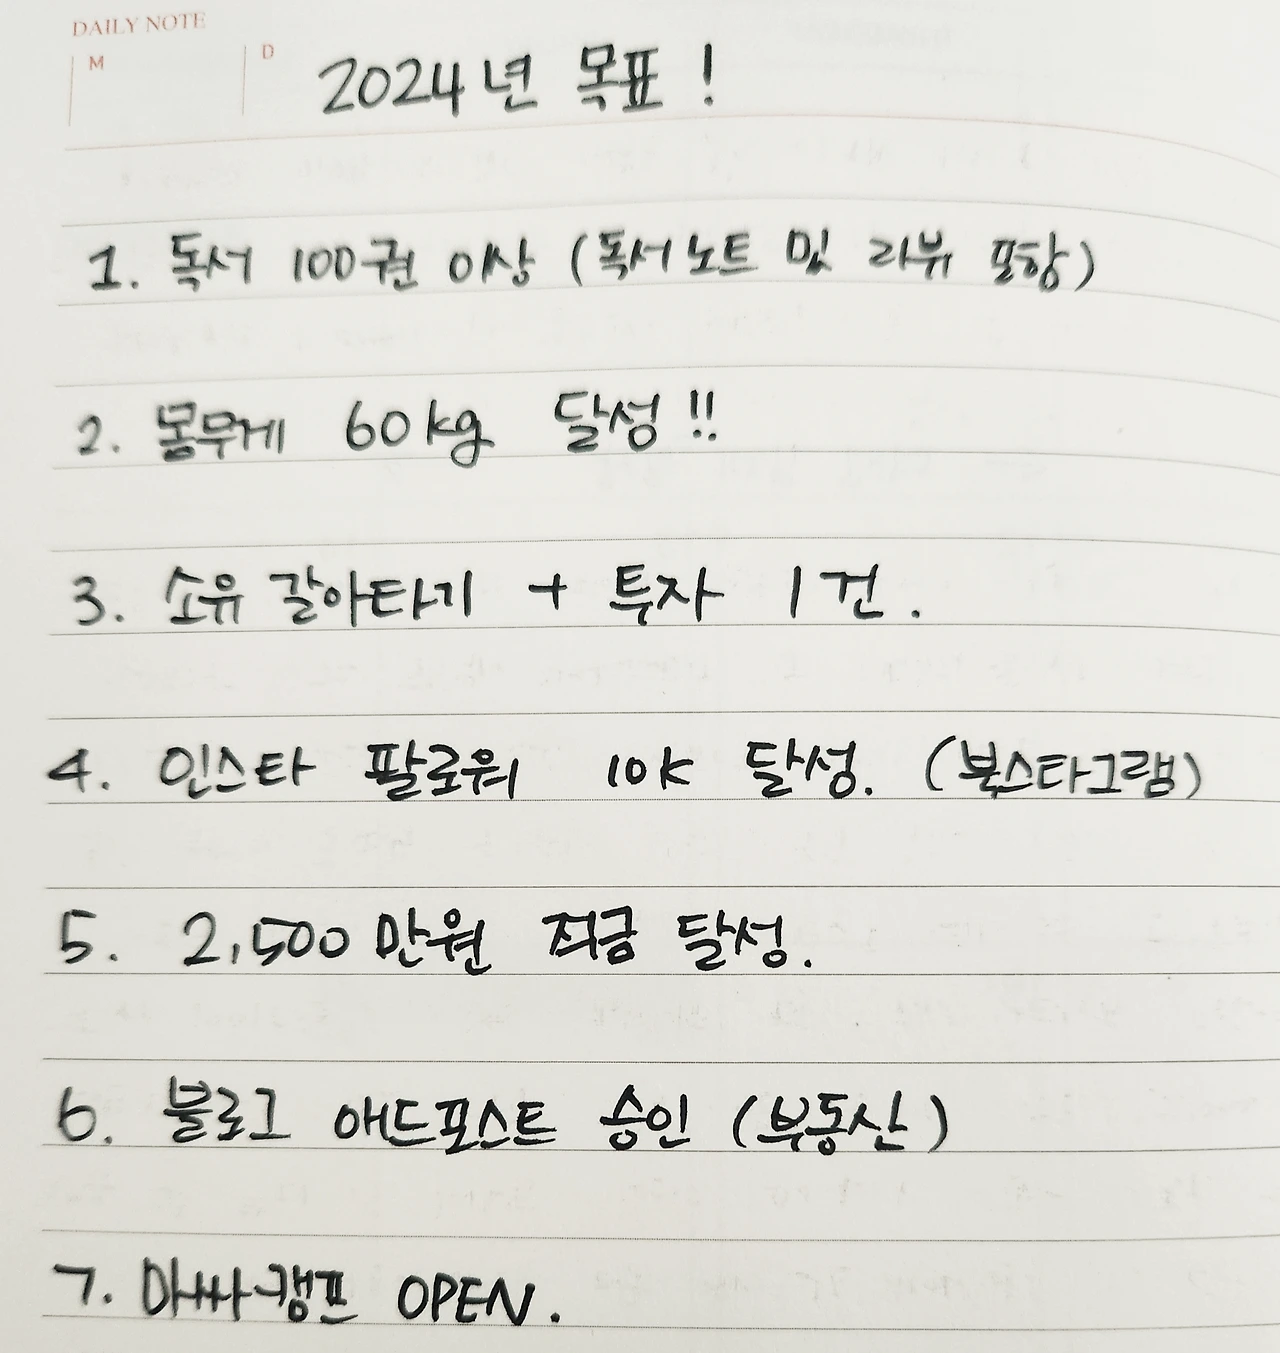 DAILY NOTE
M D
2024년 목표 !
1. 독서 100권 이상 (독서노트 및 리뷰 포함)
2. 몸무게 60kg 달성 !!
3. 소유 갈아타기 + 투자 1건.
4. 인스타 팔로워 10K 달성. (북스타그램)
5. 2,500만원 저금 달성.
6. 블로그 애드포스트 승인 (부동산)
7. OPEN.